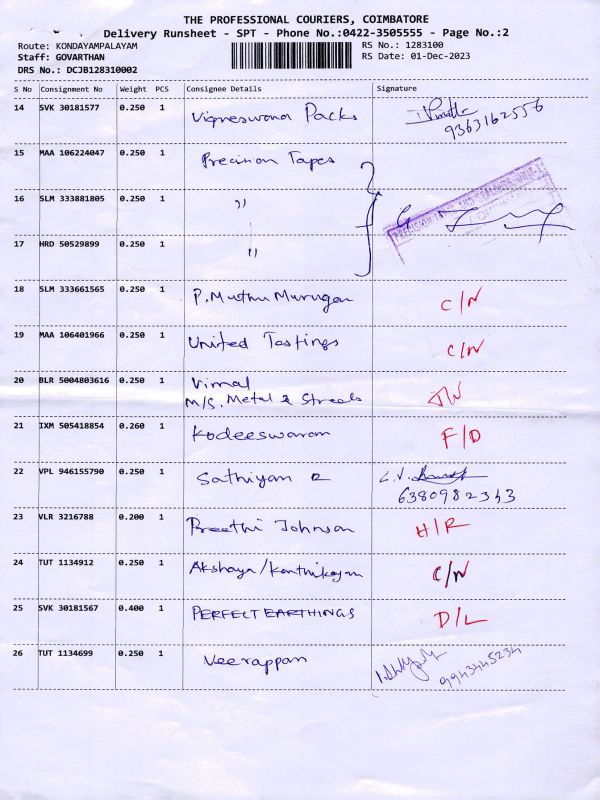 THE PROFESSIONAL COURIERS, COIMBATORE
Delivery Runsheet - SPT - Phone No.:0422-3505555 - Page No.:2
Route: KONDAYAMPALAYAM RS No.: 1283100
Staff: GOVARTHAN RS Date: 01-Dec-2023
DRS No.: DCJB128310002
S No Consignment No Weight PCS Consignee Details Signature
14 SVK 30181577 0.250 1 Vigneswara Packs
9363162556
15 MAA 106224047 0.250 1 Precision Tapes
16 SLM 333881805 0.250 1 〃
17 HRD 50529899 0.250 1 〃
18 SLM 333661565 0.250 1 P. Muthu Murugan C/N
19 MAA 106401966 0.250 1 United Tastings C/N
20 BLR 5004803616 0.250 1 Vimal
M/S. Metal & Streels
21 IXM 505418854 0.260 1 Kodeeswaran F/D
22 VPL 946155790 0.250 1 Sathiyan R
6380982343
23 VLR 3216788 0.200 1 Preethi Johnson H/R
24 TUT 1134912 0.250 1 Akshaya/Karthikeyan C/N
25 SVK 30181567 0.400 1 PERFECT EARTHINGS D/L
26 TUT 1134699 0.250 1 Veerappan
9943445234